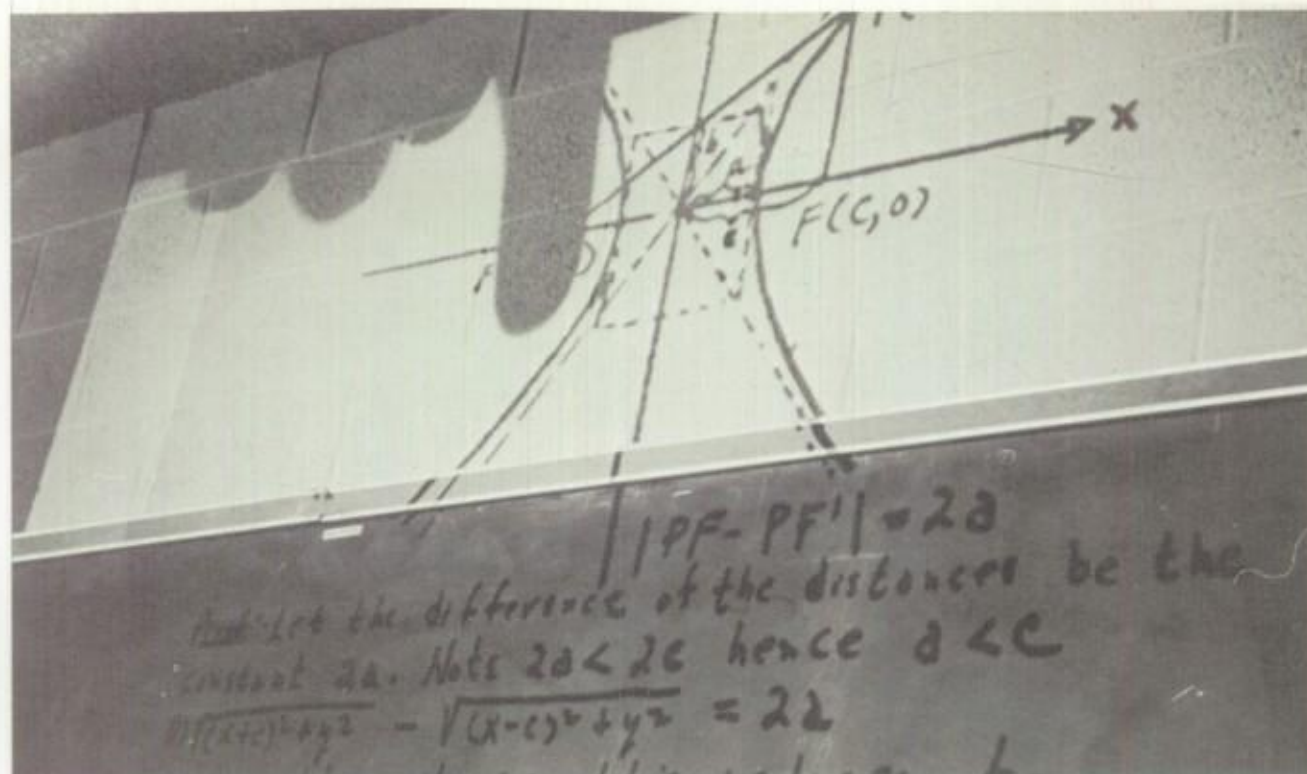 x
F(C,0)
|PF-PF'| = 2a
Let the difference of the distances be the
constant 2a. Note 2a < 2c hence a < c
√(x+c)²+y² - √(x-c)²+y² = 2a